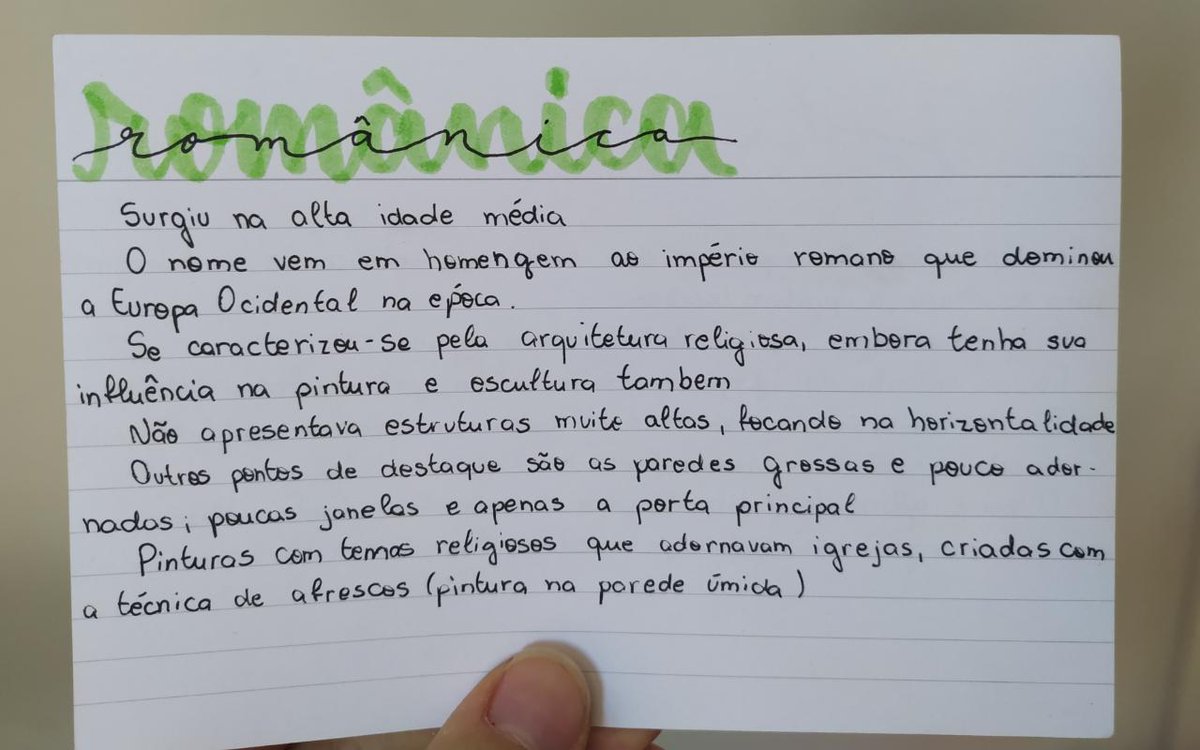 românica
Surgiu na alta idade média
O nome vem em homengem ao império romano que dominou
a Europa Ocidental na época.
Se caracterizou-se pela arquitetura religiosa, embora tenha sua
influência na pintura e escultura tambem
Não apresentava estruturas muito altas, focando na horizontalidade
Outros pontos de destaque são as paredes grossas e pouco ador-
nadas; poucas janelas e apenas a porta principal
Pinturas com temas religiosos que adornavam igrejas, criadas com
a técnica de afrescos (pintura na parede úmida)